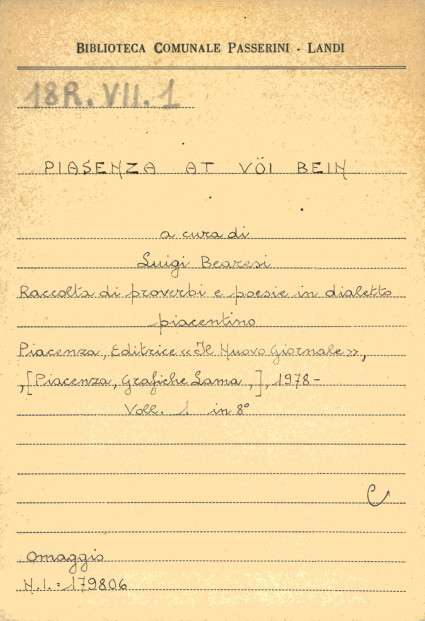 BIBLIOTECA COMUNALE PASSERINI - LANDI
18R.VII.1
PIASENZA AT VÖI BEIN
a cura di
Luigi Bearesi
Raccolta di proverbi e poesie in dialetto
piacentino
Piacenza, Editrice «Il Nuovo Giornale»,
,[Piacenza, Grafiche Lama,], 1978-
Voll. 1 in 8°
C
Omaggio
N.I.=179806